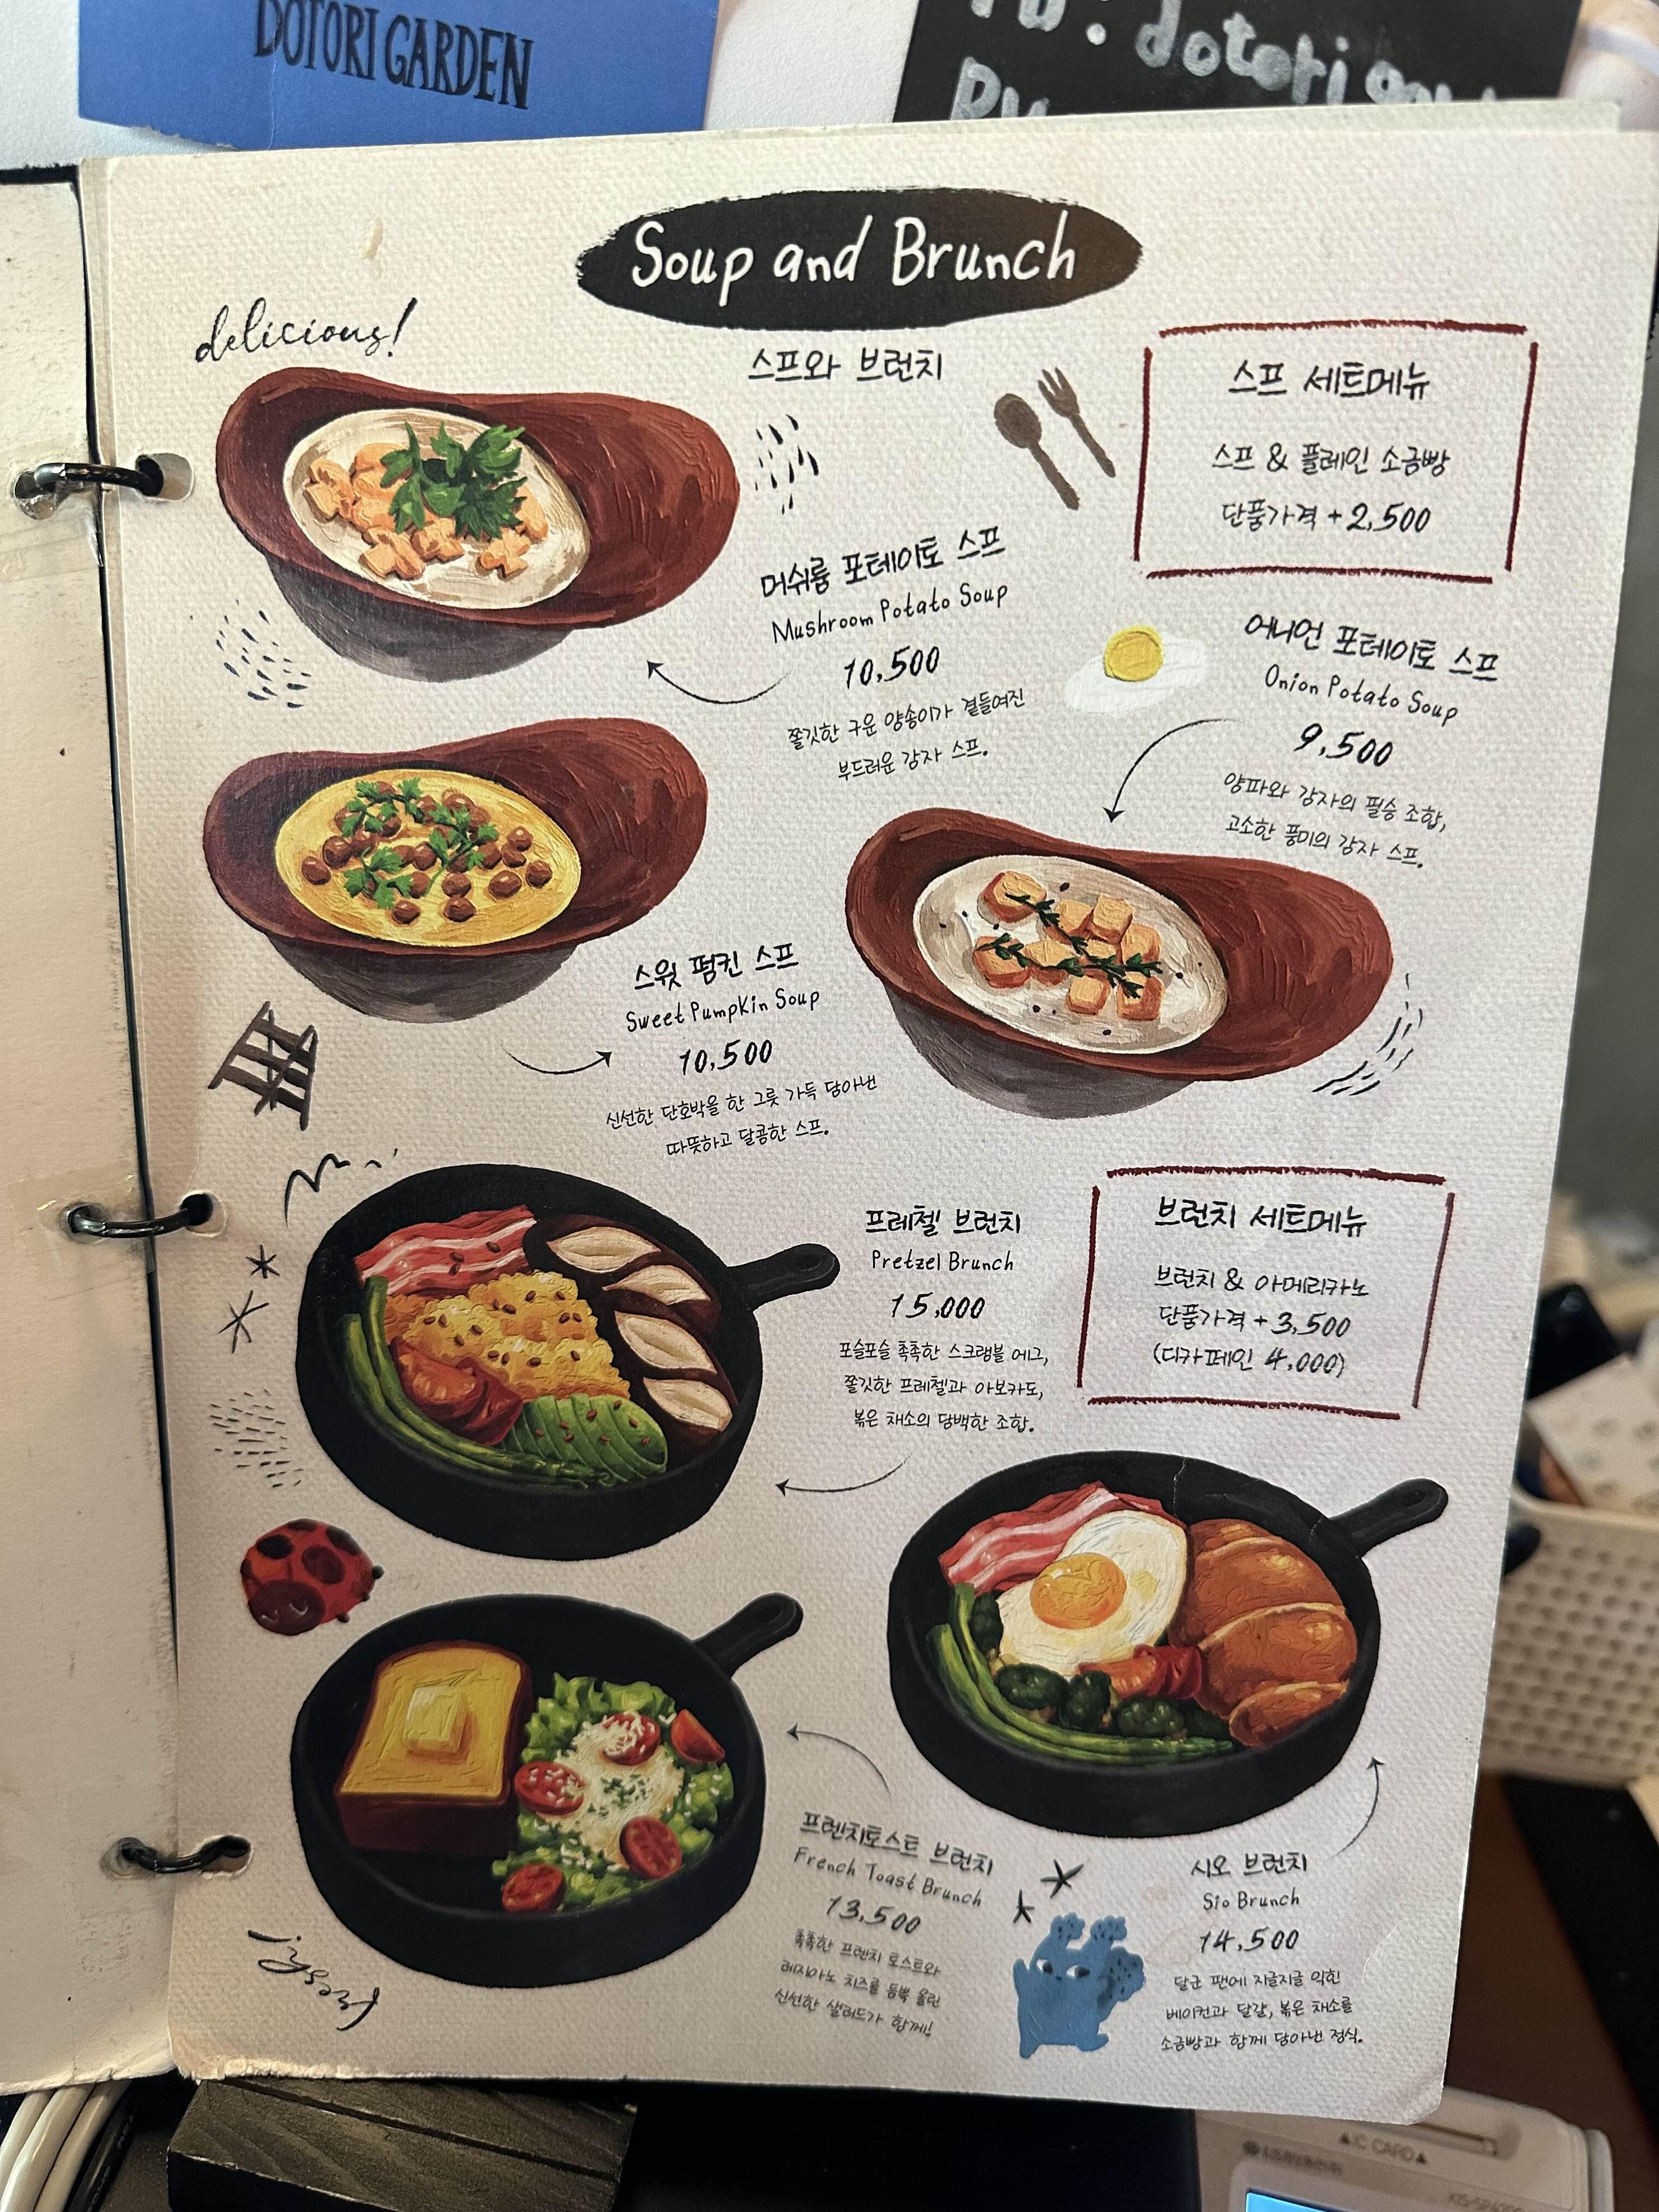 DOTORI GARDEN
: dotori
Soup and Brunch
delicious!
스프와 브런치
스프 세트메뉴
스프 & 플레인 소금빵
단품가격 + 2,500
머쉬룸 포테이토 스프
Mushroom Potato Soup
10,500
쫄깃한 구운 양송이가 곁들여진
부드러운 감자 스프.
어니언 포테이토 스프
Onion Potato Soup
9,500
양파와 감자의 필승 조합,
고소한 풍미의 감자 스프.
스윗 펌킨 스프
Sweet Pumpkin Soup
10,500
신선한 단호박을 한 그릇 가득 담아낸
따뜻하고 달콤한 스프.
프레첼 브런치
Pretzel Brunch
15,000
포슬포슬 촉촉한 스크램블 에그,
쫄깃한 프레첼과 아보카도,
볶은 채소의 담백한 조합.
브런치 세트메뉴
브런치 & 아메리카노
단품가격 + 3,500
(디카페인 4,000)
프렌치토스트 브런치
French Toast Brunch
13,500
촉촉한 프렌치 토스트와
레지아노 치즈를 듬뿍 올린
신선한 샐러드가 함께!
시오 브런치
Sio Brunch
14,500
달군 팬에 지글지글 익힌
베이컨과 달걀, 볶은 채소를
소금빵과 함께 담아낸 정식.
▲IC CARD▲